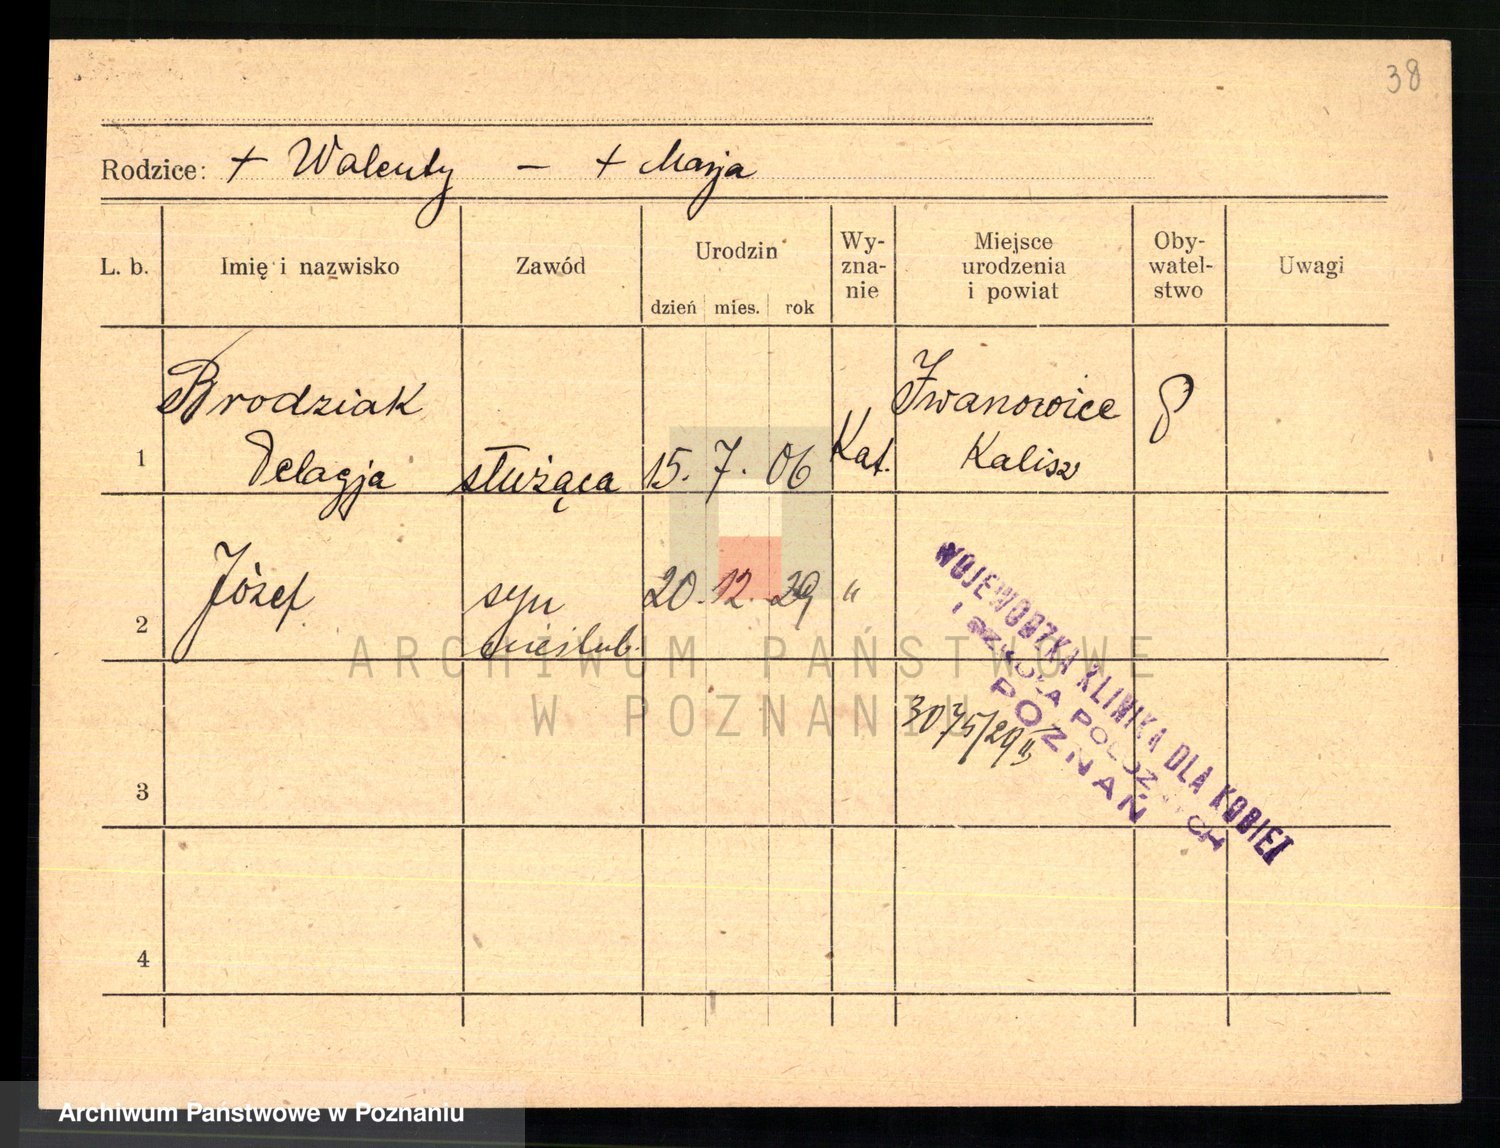 38
Rodzice: + Walenty – + Marja
L. b. Imię i nazwisko Zawód Urodzin Wy-zna-nie Miejsce urodzenia i powiat Oby-watel-stwo Uwagi
dzień mies. rok
Brodziak Iwanowice
1 Pelagja służąca 15. 7. 06 Kat. Kalisz
2 Józef syn 20. 12. 29 "
nieślub.
WOJEWÓDZKA KLINIKA DLA KOBIET
I SZKOŁA POŁOŻNYCH
POZNAŃ
3075/29
3
4
ARCHIWUM PAŃSTWOWE
W POZNANIU
Archiwum Państwowe w Poznaniu